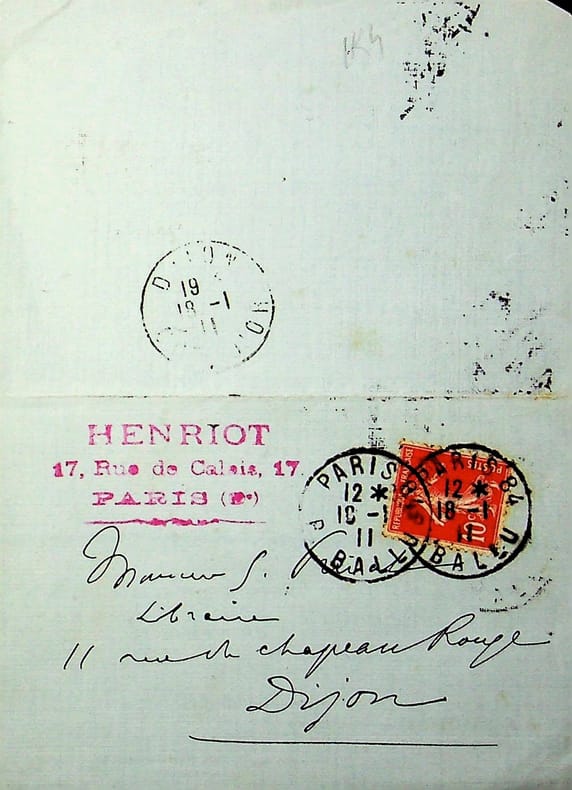 154
DIJON
19
18 -1
11
HENRIOT
17, Rue de Calais, 17
PARIS (9e)
PARIS 84
12 *
18 -1
11
R. BALLU
PARIS 84
12 *
18 -1
11
R. BALLU
REPUBLIQUE FRANÇAISE
POSTES
10
Monsieur S.
Libraire
11 rue du chapeau Rouge
Dijon